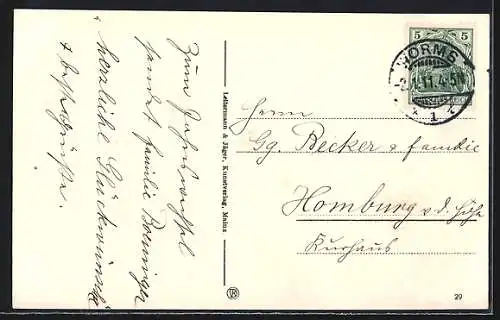 Zum Jahreswechsel
sendet Familie
herzliche Glückwünsche
+ beste Grüße.
Leitermann & Jäger, Kunstverlag, Mainz
5 5
WORMS
2.1.11.4-5N
* 1 *
Herrn
Gg. Becker & Familie
Homburg v. d. Höhe
Kurhaus
29